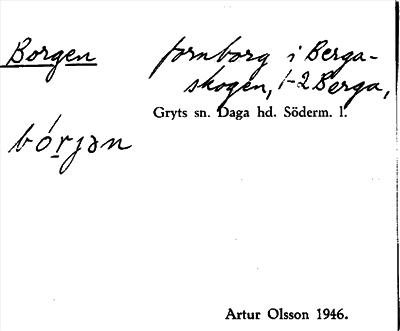 Borgen fornborg i Berga-
skogen, 1-2 Berga,
Gryts sn. Daga hd. Söderm. l.
bórjən
Artur Olsson 1946.